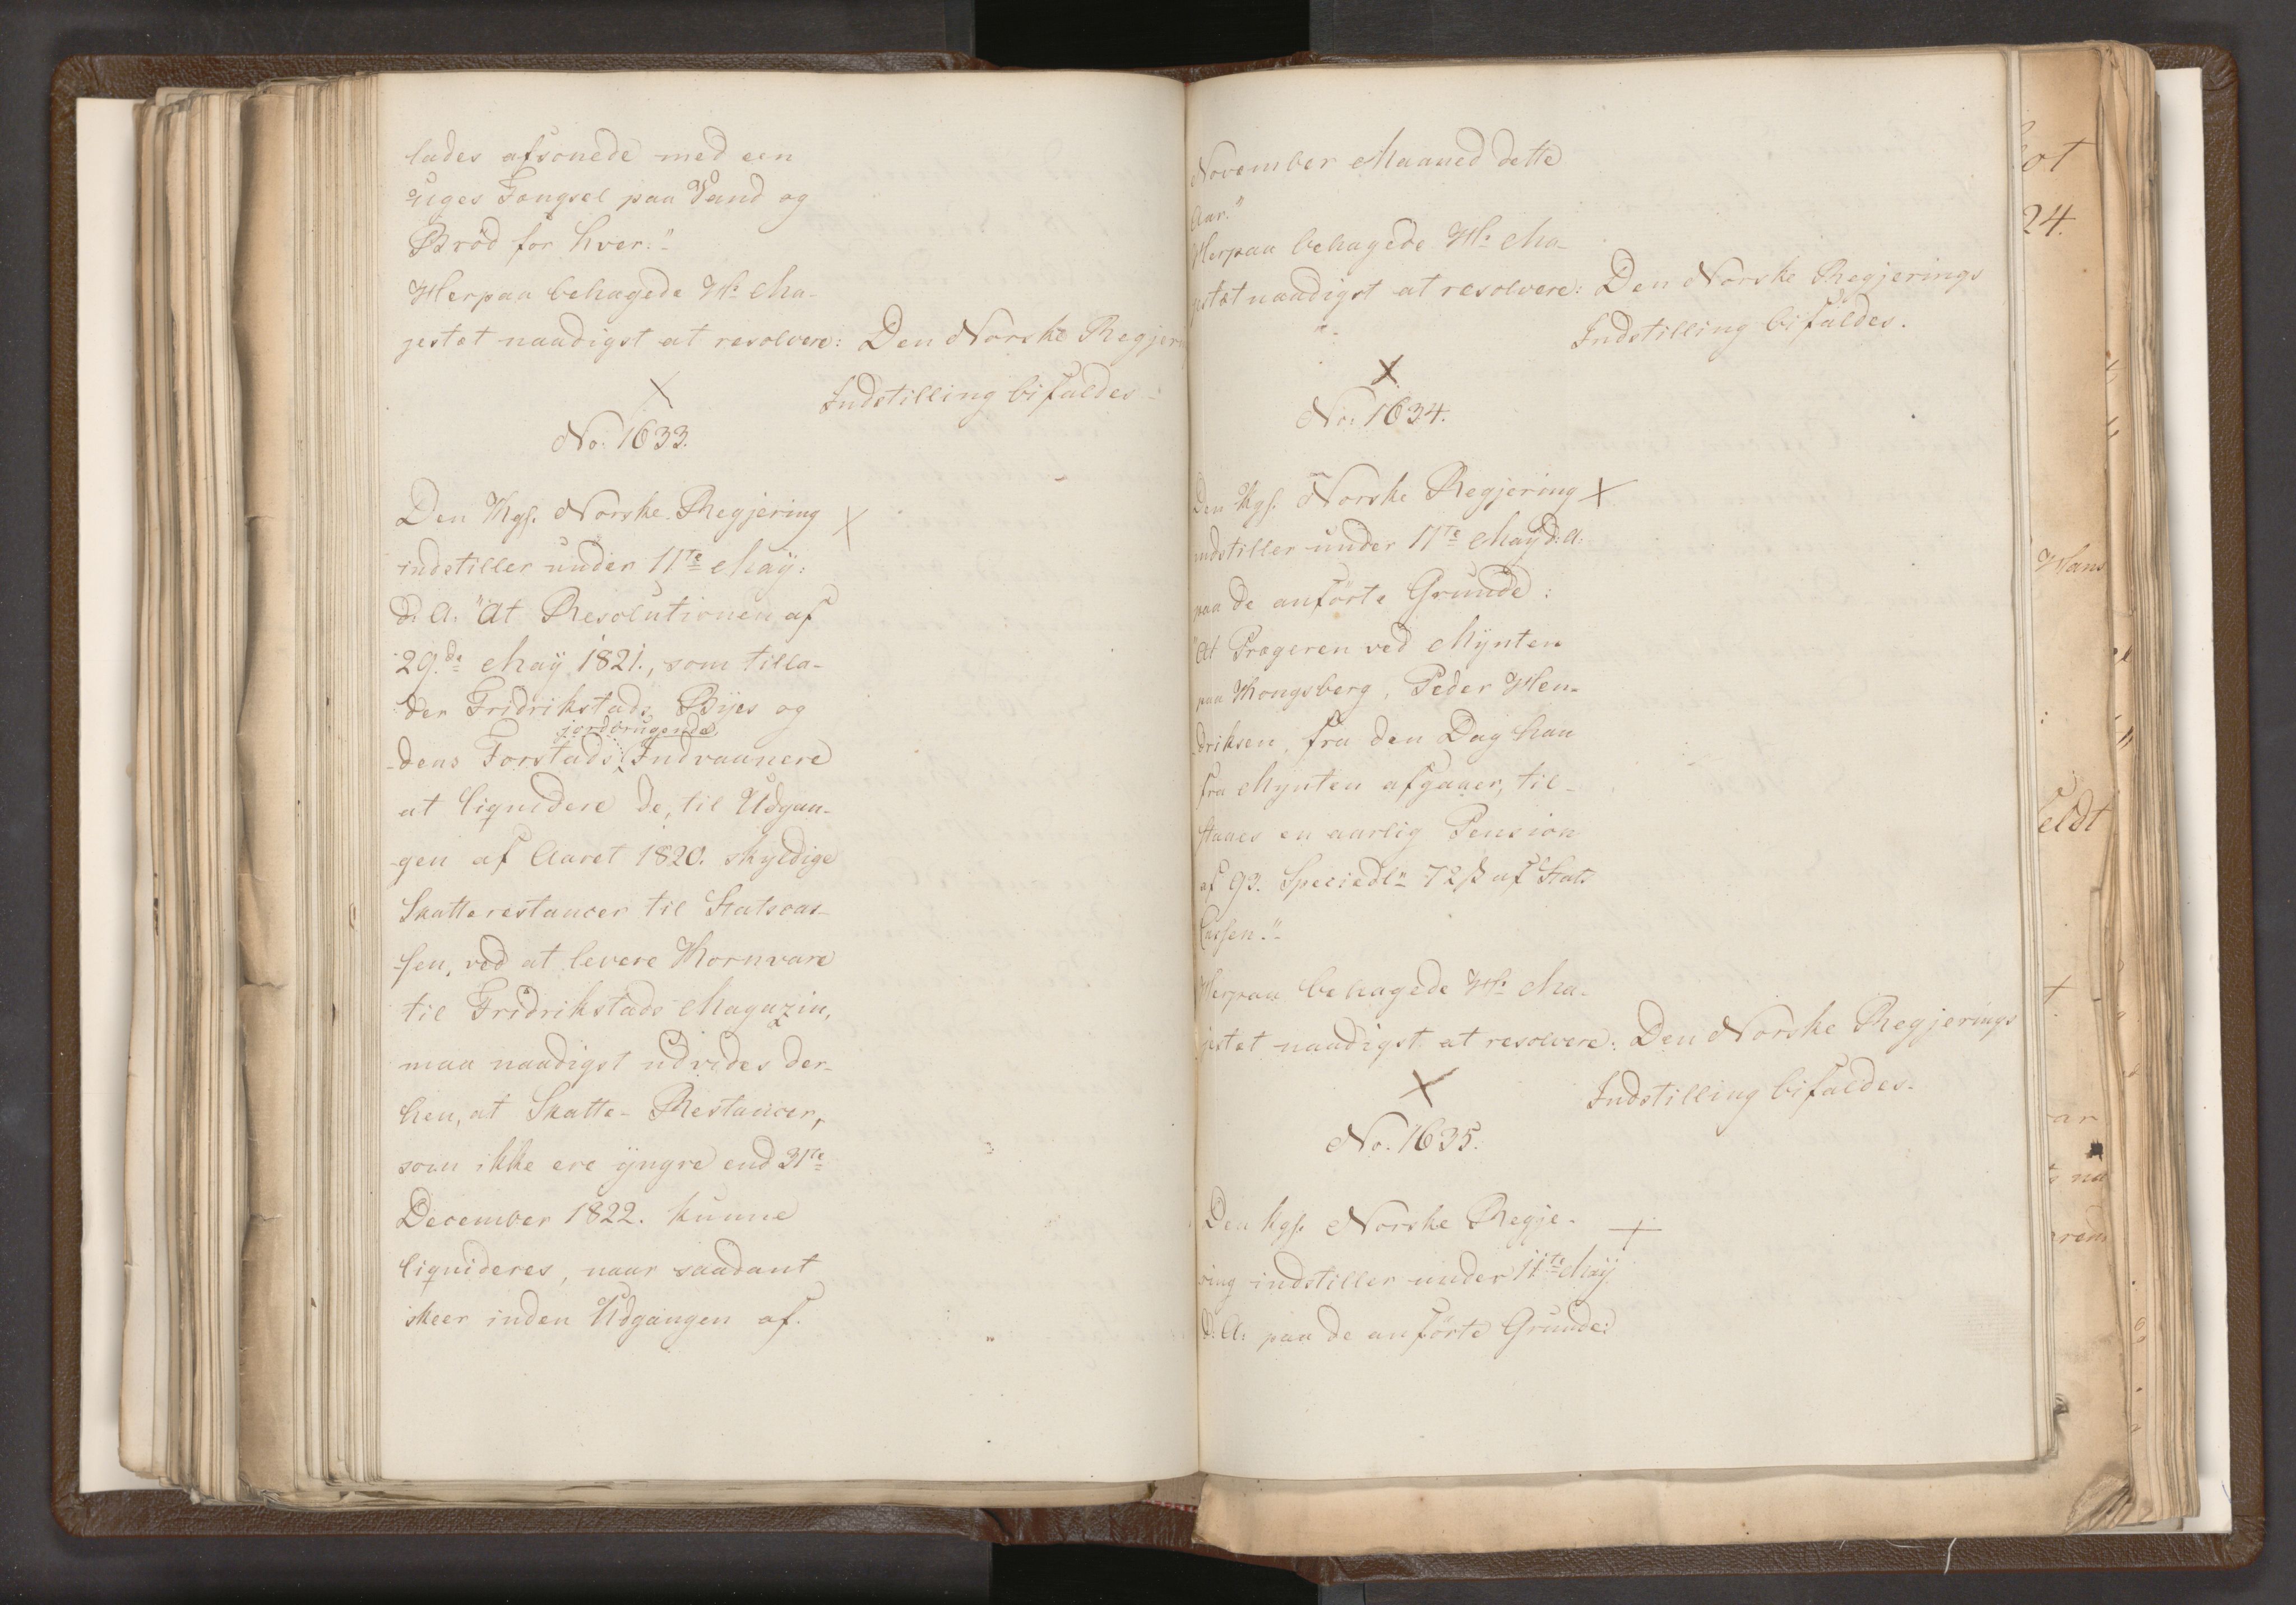 lades afsonede med een
uges Fængsel paa Vand og
Brød for hver."
Herpaa behagede Hs. Ma-
jestæt naadigst at resolvere: Den Norske Regjeri
Indstilling bifaldes.
X
No. 1633.
Den Kgl. Norske Regjering X
indstiller under 11te May:
d: A: "At Resolutionen af
29de May 1821., som tilla-
der Fridrikstads Byes og
jordbrugende
dens Forstads Indvaanere
at liquidere de, til Udgan-
gen af Aaret 1820. skyldige
Skatterestancer til Statscas-
sen, ved at levere Kornvare
til Fridrikstads Magazin,
maa naadigst udvides der-
hen, at Skatte-Restancer,
som ikke ere yngre end 31te
December 1822. kunne
liquideres, naar saadant
skeer inden Udgangen af
November Maaned dette
Aar."
Herpaa behagede Hs. Ma-
jestæt naadigst at resolvere: Den Norske Regjerings
Indstilling bifaldes.
X
No. 1634.
Den Kgl. Norske Regjering X
indstiller under 11te May d: A:
paa de anførte Grunde:
"At Prægeren ved Mynten
paa Kongsberg, Peder Hen-
driksen, fra den Dag han
fra Mynten afgaaer, til-
staaes en aarlig Pension
af 93. Speciedlr 72 ß af Stats
Cassen."
Herpaa behagede Hs. Ma-
jestæt naadigst at resolvere: Den Norske Regjerings
Indstilling bifaldes.
X
No. 1635.
Den Kgl. Norske Regje- +
ring indstiller under 11te May
d: A: paa de anførte Grunde:
24.
Hans